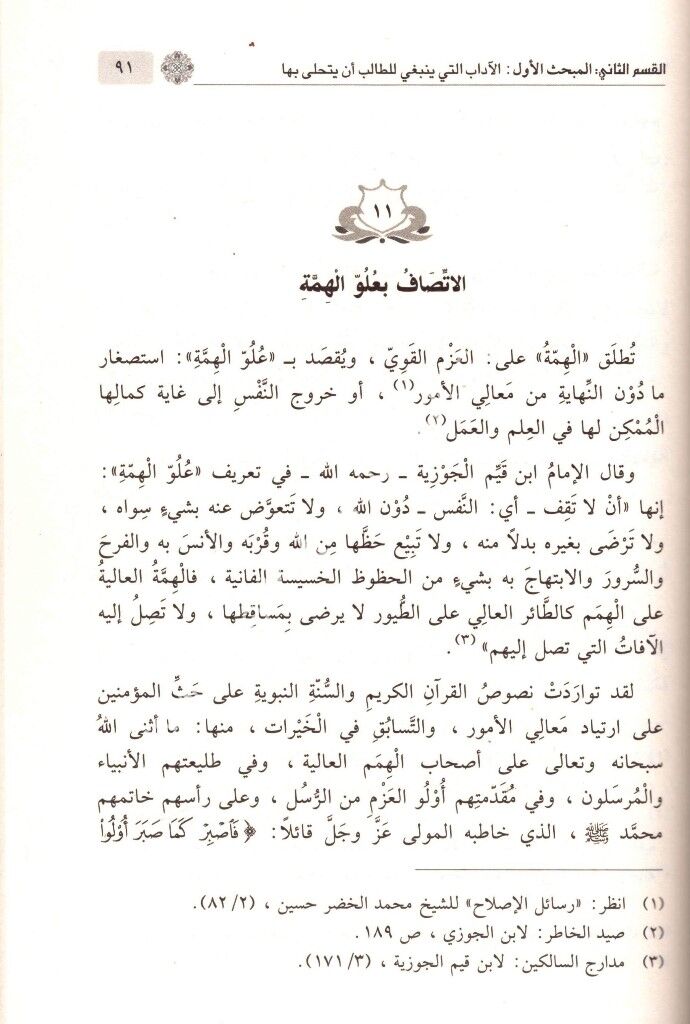 القسم الثاني: المبحث الأول: الآداب التي ينبغي للطالب أن يتحلى بها ٩١
١١
الاتِّصَافُ بعُلُوّ الْهِمَّةِ
تُطلَق «الْهِمّةُ» على: العَزْم القَوِيّ ، ويُقصَد بـ «عُلُوّ الْهِمَّةِ»: استصغار
ما دُوْن النِّهايةِ من مَعالِي الأمور(١) ، أو خروج النَّفْسِ إلى غاية كمالِها
الْمُمْكِن لها في العِلم والعَمَل(٢).
وقال الإمامُ ابن قَيِّم الْجَوْزِية ـ رحمه الله ـ في تعريف «عُلُوّ الْهِمّةِ»:
إنها «أنْ لا تَقِف ـ أي: النَّفس ـ دُوْن الله ، ولا تَتعوَّض عنه بشيءٍ سِواه ،
ولا تَرْضَى بغيره بدلاً منه ، ولا تَبِيْع حَظَّها مِن الله وقُرْبَه والأنسَ به والفرحَ
والسُّرورَ والابتهاجَ به بشيءٍ من الحظوظ الخسيسة الفانية ، فالْهِمَّةُ العاليةُ
على الْهِمَم كالطَّائر العالِي على الطُّيور لا يرضى بِمَساقِطها ، ولا تَصِلُ إليه
الآفاتُ التي تصل إليهم»(٣).
لقد توارَدَتْ نصوصُ القرآنِ الكريمِ والسُّنّةِ النبويةِ على حَثِّ المؤمنين
على ارتياد مَعالِي الأمور ، والتَّسابُقِ في الْخَيْرات ، منها: ما أثنى اللهُ
سبحانه وتعالى على أصحاب الْهِمَم العالية ، وفي طليعتهم الأنبياء
والْمُرسَلون ، وفي مُقَدّمتِهم أُوْلُو العَزْمِ من الرُّسُل ، وعلى رأسهم خاتمهم
محمَّد ﷺ ، الذي خاطبه المولى عَزَّ وجَلَّ قائلاً: ﴿فَاصْبِرْ كَمَا صَبَرَ أُوْلُواْ
(١) انظر: «رسائل الإصلاح» للشيخ محمد الخضر حسين ، (٨٢/٢).
(٢) صيد الخاطر: لابن الجوزي ، ص ١٨٩.
(٣) مدارج السالكين: لابن قيم الجوزية ، (١٧١/٣).